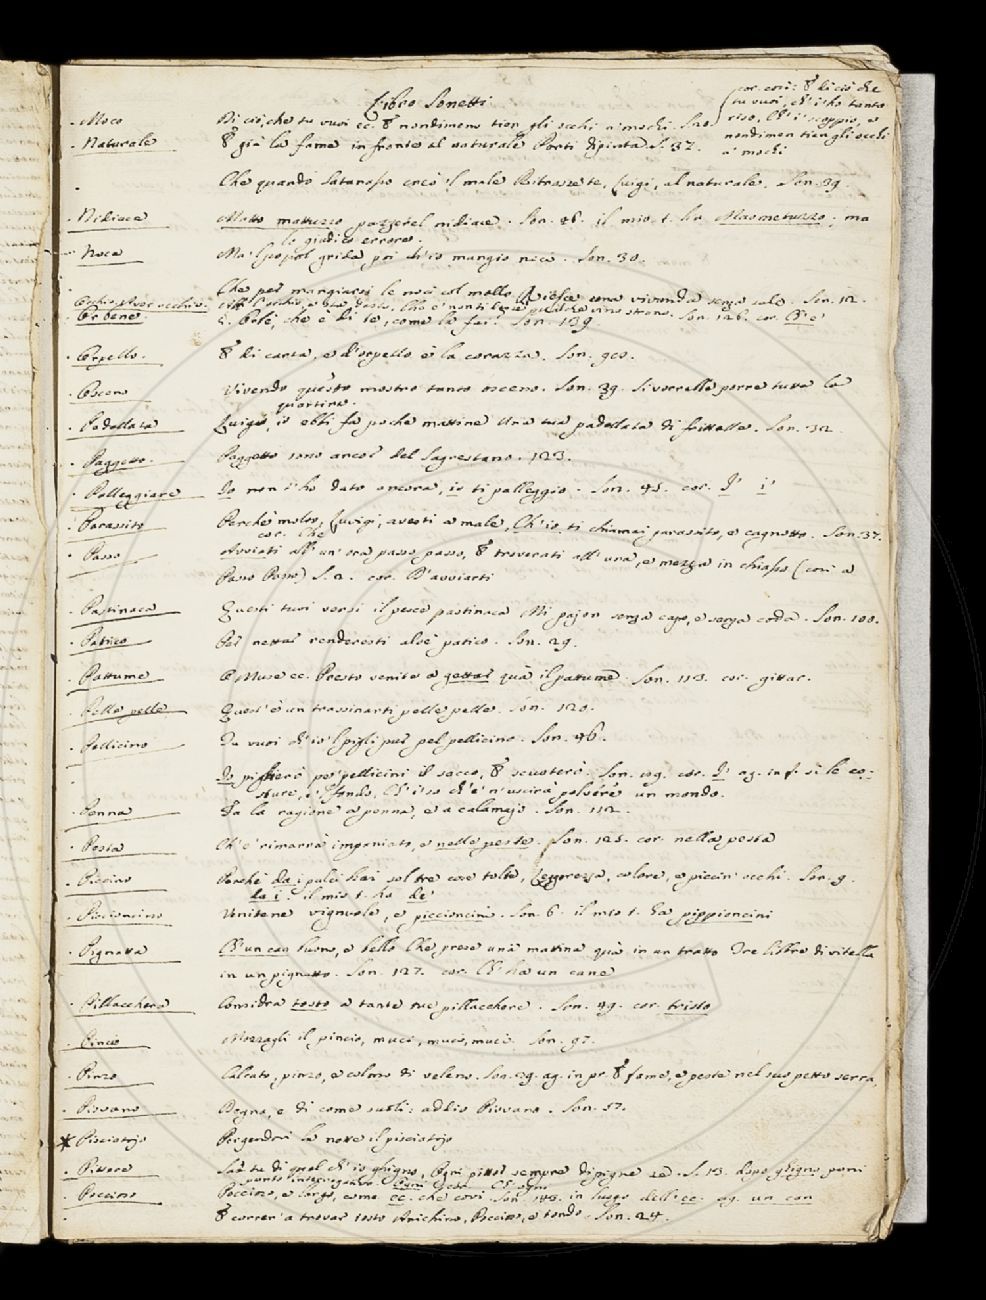 Libro Sonetti
. Moco Di ciò, che tu vuoi ec. E nondimeno tien gli occhi a' mochi. Son.
cor. così: E di ciò che
tu vuoi, ch' i' ho tanto
riso, Ch' i' scoppio, e
nondimen tien gli occhi
a' mochi
. Naturale E già la fame in fronte al naturale Porti dipinta S. 37.
. Che quando Satanasso creò 'l male Ritrasse te, Luigi, al naturale. Son. 39.
. Nidiace Matto mattuzzo, pazzerel nidiace. Son. 46. il mio t. ha Maometuzzo; ma
lo giudico errore.
. Noce Ma 'l popol grida poi ch' io mangio noce. Son. 30.
. Che per mangiarsi le noci col mallo Riesce una vivanda senza sale. Son. 12.
. Or bene. E. Befè, che è di te, come la fai? Son. 139.
. Orpello. E di carta, e d'orpello è la corazza. Son. 90.
. Osceno Vivendo questo mostro tanto osceno. Son. 39. si vorrebbe porre tutta la
quartina.
. Padellata Luigi, io ebbi fa poche mattine Una tua padellata di frittelle. Son. 32.
. Paggetto. Paggetto sono ancor del Sagrestano. 123.
. Palleggiare Io non t'ho dato ancora, io ti palleggio. Son. 45. cor. I' i'
. Parassito Perchè molto, Luigi, avesti a male, Ch' io ti chiamai parassito, e cagnotto. Son. 37.
cor. Che
. Passo Avviati all' un' ora passo passo, E troverati all' una, e mezza in chiasso (così a
Passo Passo) S. 2. cor. D'avviarti
. Pastinaca Questi tuoi versi il pesce pastinaca Mi pajon senza capo, e senza coda. Son. 100.
. Patico Per nettar renderesti aloè patico. Son. 29.
. Pattume O Muse ec. Presto venite a gettar quà il pattume. Son. 113. cor. gittar.
. Pelle pelle Quest' è un trassinarti pelle pelle. Son. 120.
. Pellicino Tu vuoi ch' io 'l pigli pur pel pellicino. Son. 46.
. Io piglierò pe' pellicini il sacco, E scuoterò. Son. cor. I' ag. in f. sì le co-
sture, e 'l fondo, Ch' i' so ch' e' n'uscirà polvere un mondo.
. Penna Fa la ragione a penna, e a calamajo. Son. 112.
. Pesta Ch' e' rimarrà impaniato, e nelle peste. Son. 125. cor. nella pesta
. Piccino Perchè da i pulci hai sol tre cose tolte, Leggerezza, colore, e piccin' occhi. Son. 9.
da i: il mio t. ha de'
. Piccioncino Venitene vignuole, e piccioncini. Son. 6. il mio t. ha pippioncini
. Pignatta Ch' un can buono, e bello Che prese una mattina quà in un tratto Tre libbre di vitella
in un pignatto. Son. 127. cor. Ch' ha un cane
. Pillacchera Considra tosto a tante tue pillacchere. Son. 49. cor. tristo
. Pincio Mozzagli il pincio, muci, muci, muci. Son. 97.
. Pinzo Calcato, pinzo, e colmo di veleno. Son. 29. ag. in pr. E fame, e peste nel suo petto serra.
. Piovano Degno, e di come susti: addio Piovano. Son. 57.
* Pisciatojo Pergendoci la notte il pisciatojo
. Pittore Sai tu di quel ch' io ghigno, Ogni pittor sempre dipigne sè. S. 13. dopo ghigno, poni
punto interrogativo. Ogni Ch' ogni
. Poccino Poccino, e sorgo, come ec. che corri Son. in luogo dell' ec. ag. un can
. E correr' a trovar tosto Arichino, Poccino, e tondo. Son. 24.